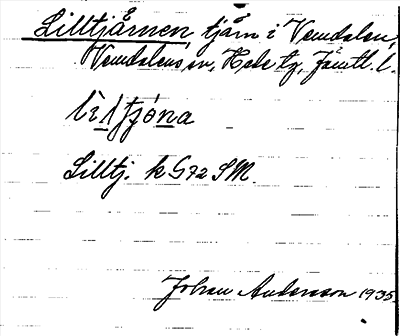 Lilltjärnen tjärn i Vemdalen,
Vemdalens sn, Hede tg, Jämtl. l.
lìltjó̱na
Lilltj. k G72 SM.
Johan Andersson 1935